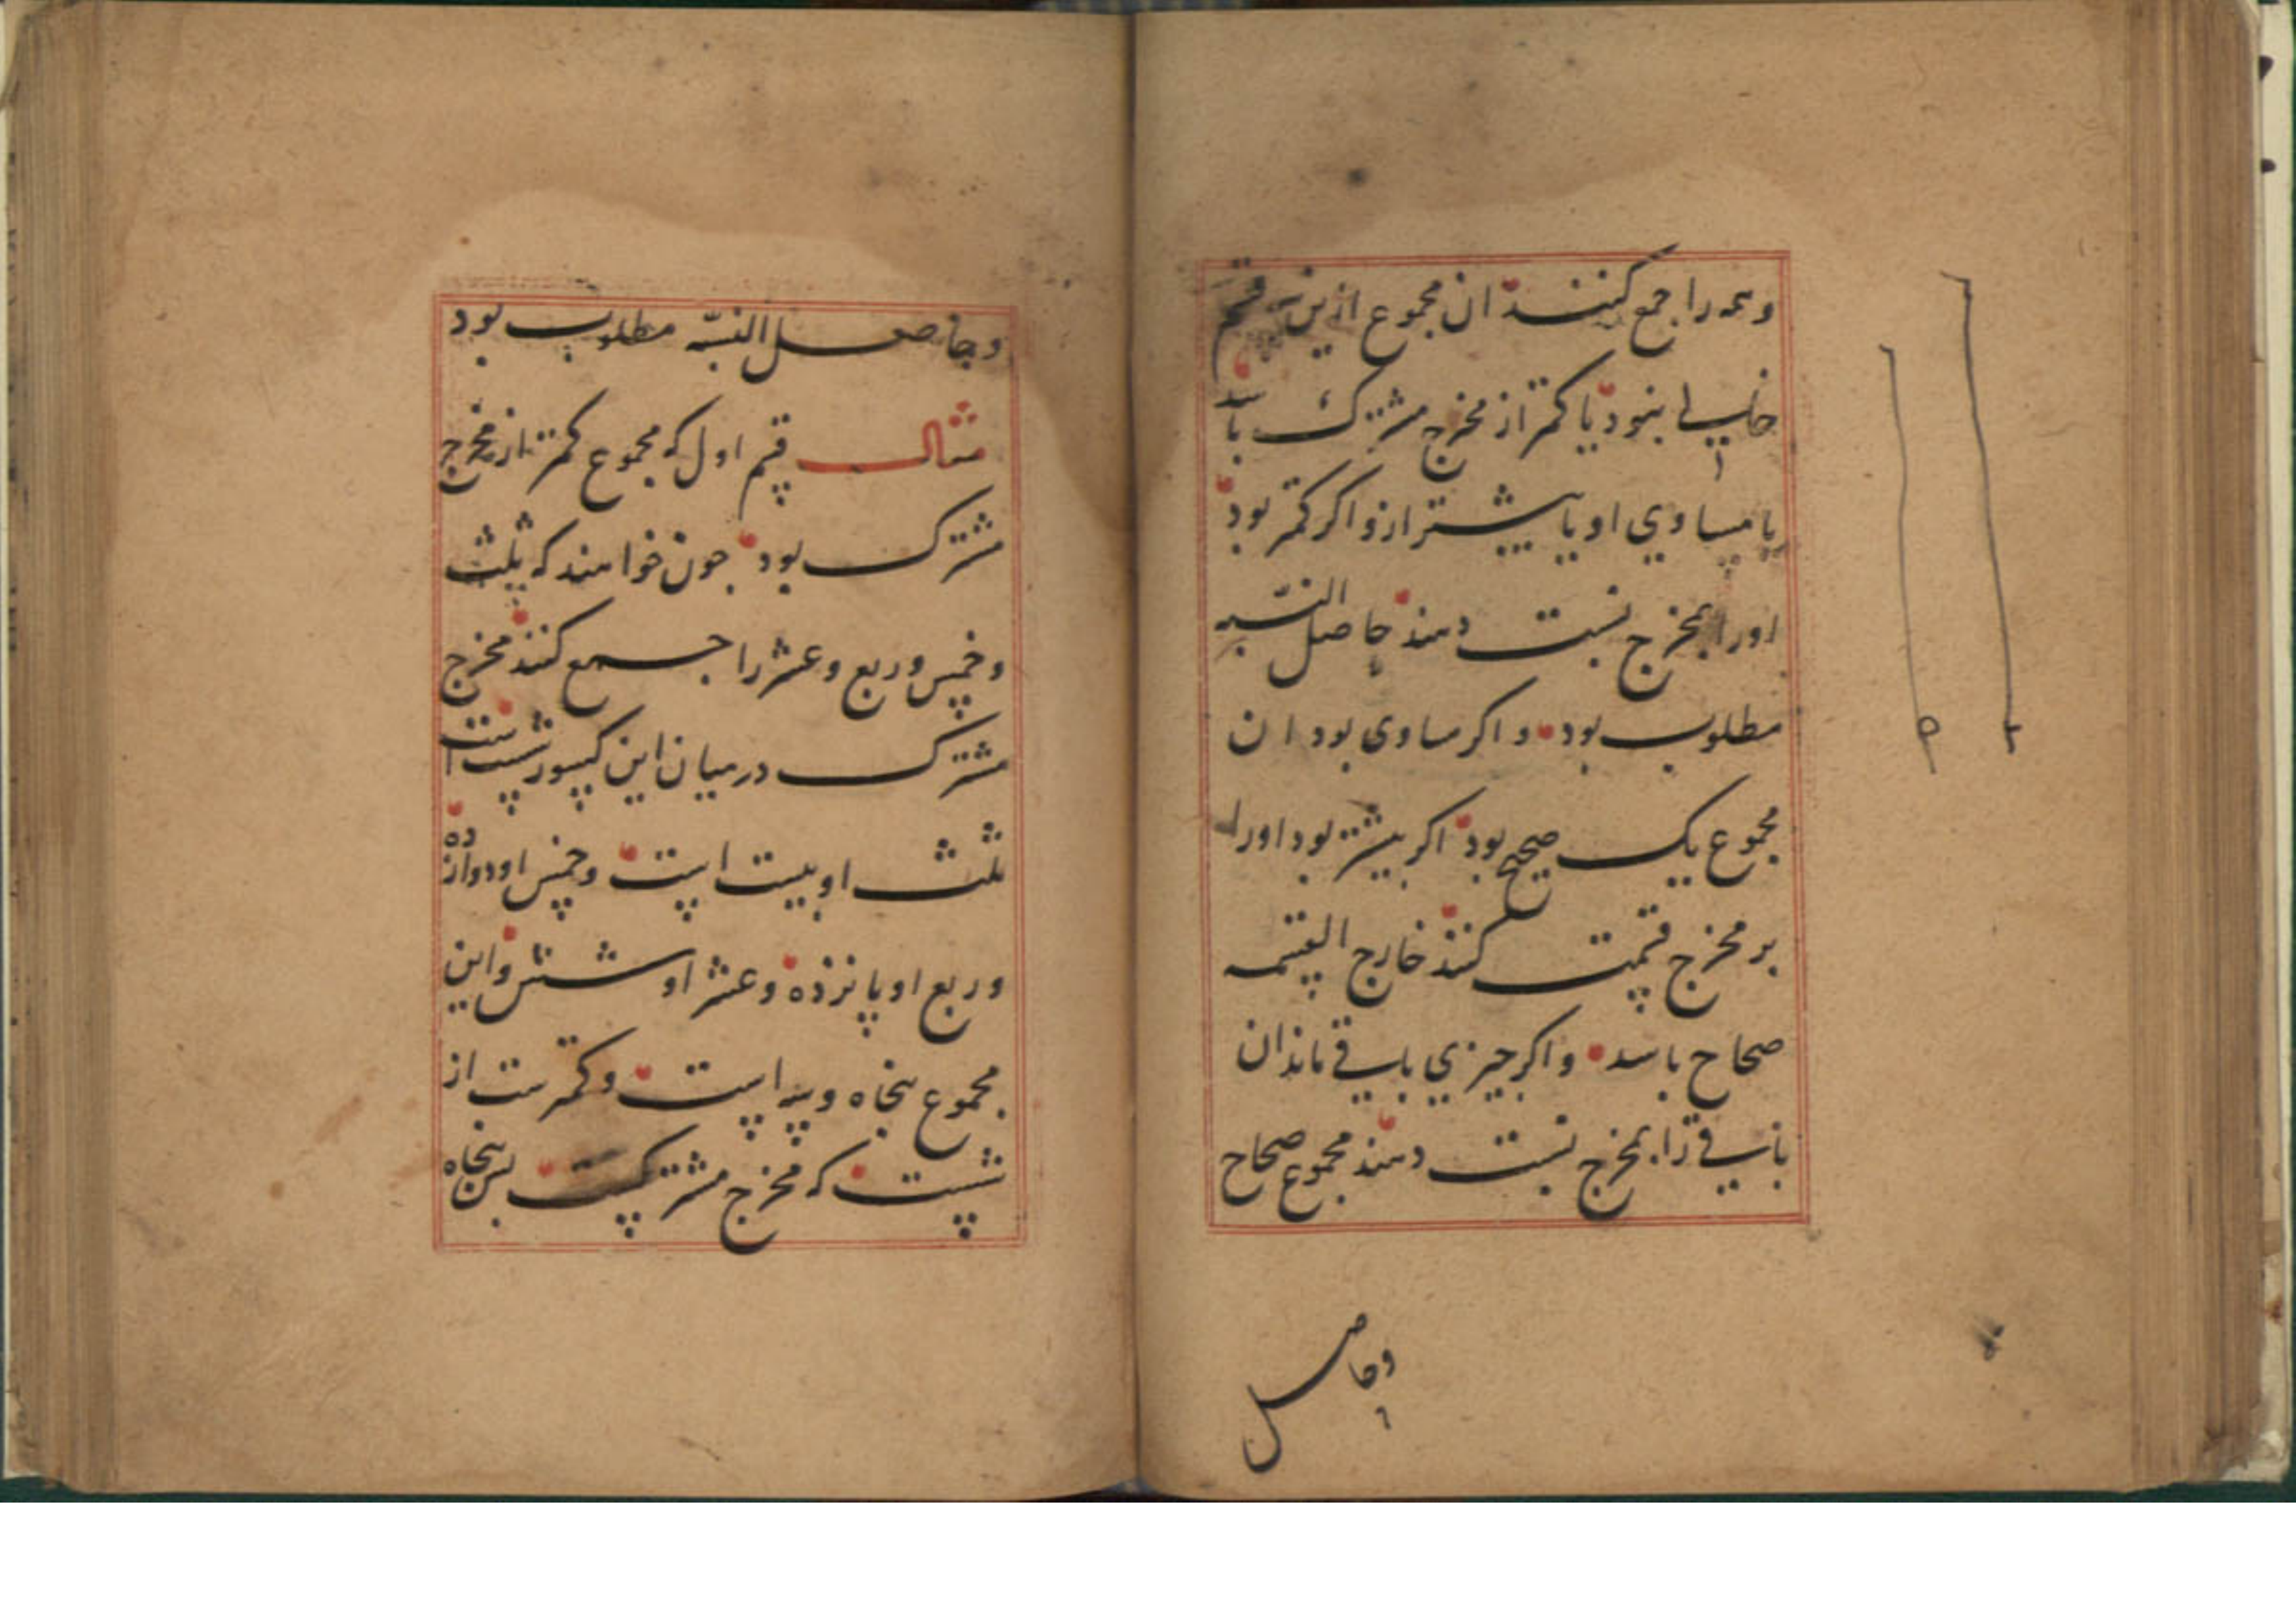 وهمه را جمع کنند ان مجموع ازین سه قسم
خالی نبود یا کمتر از مخرج مشترک باشد
یا مساوی او یا بیشتر ازو اکر کمتر بود
اورا بمخرج نسبت دهند حاصل النسبه
مطلوب بود و اکر مساوی بود ان
مجموع یک صحیح بود اکر بیشتر بود اورا
بر مخرج قسمت کنند خارج القسمه
صحاح باشد و اکر چیزی باقی ماند ان
باقی را بمخرج نسبت دهند مجموع صحاح
وحاصل
وحاصل النسبه مطلوب بود
مثال قسم اول که مجموع کمتر از مخرج
مشترک بود چون خواهند که ثلث
وخمس وربع وعشر را جمع کنند مخرج
مشترک درمیان این کسور شست است
ثلث او بیست است وخمس او دوازده
وربع او پانزده وعشر او شش واین
مجموع پنجاه وسه است وکمترست از
شست که مخرج مشترکست پس پنجاه